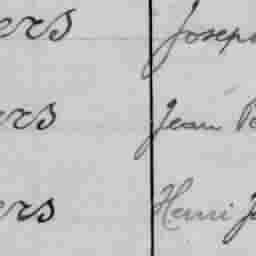 ers Joseph
ers Jean
ers Henri